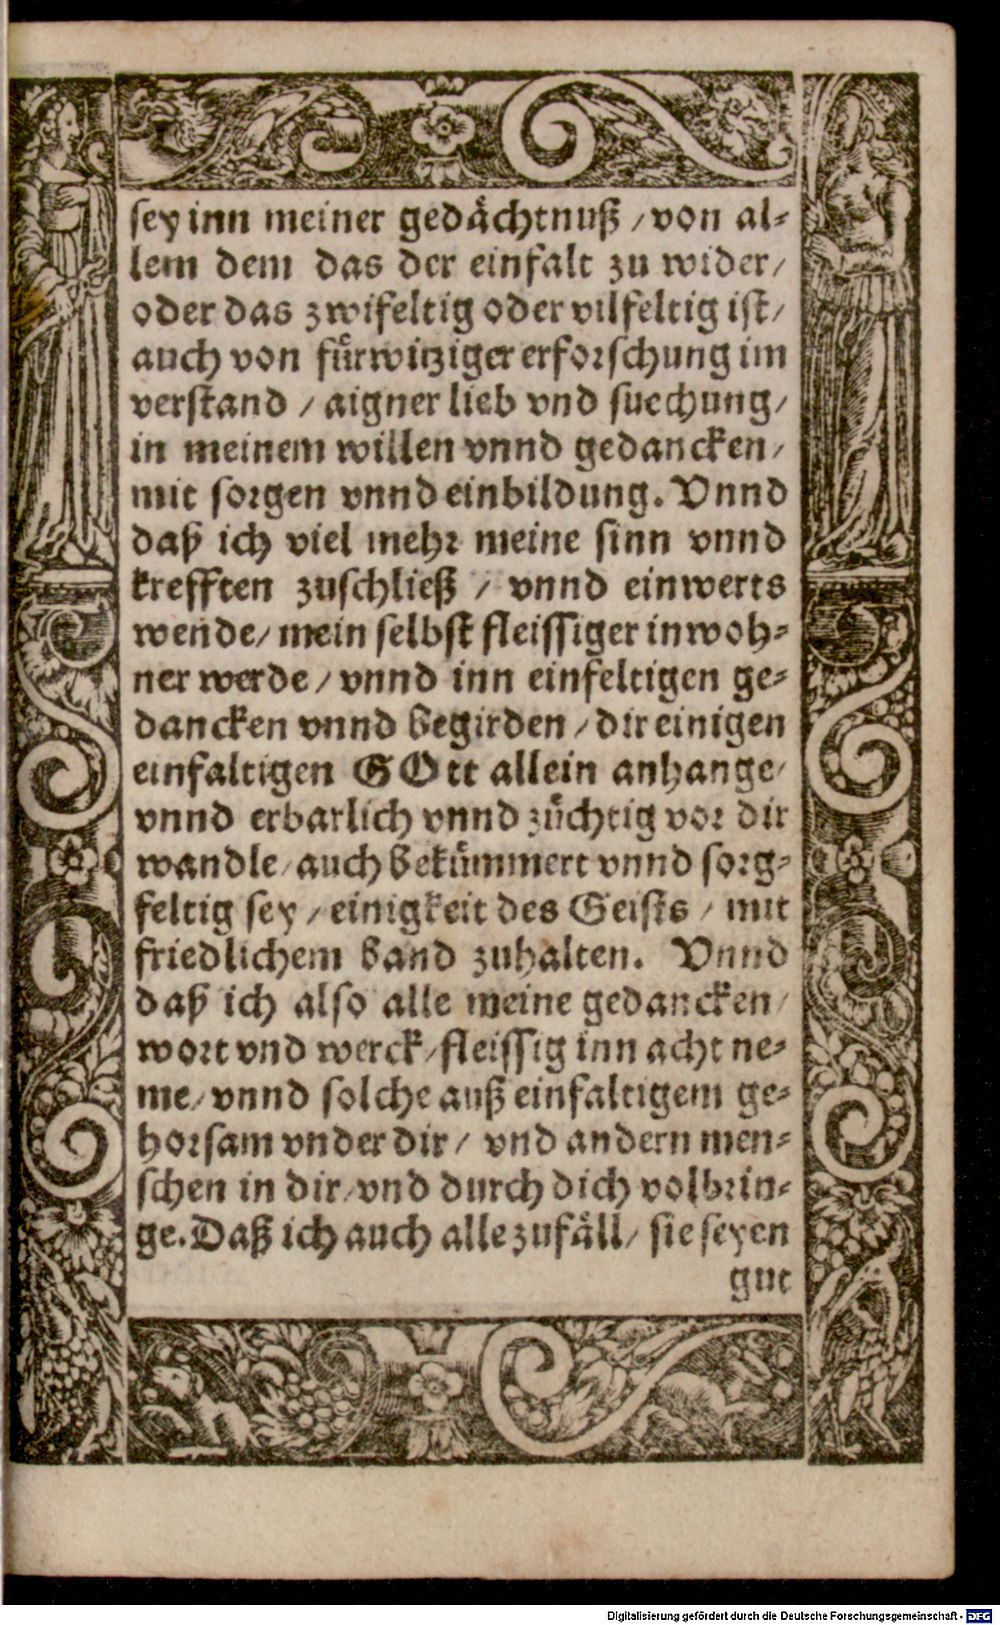 sey inn meiner gedaͤchtnuß / von al⸗
lem dem das der einfalt zu wider /
oder das zwifeltig oder vilfeltig ist /
auch von fuͤrwitziger erforschung im
verstand / aigner lieb vnd suechung /
in meinem willen vnnd gedancken /
mit sorgen vnnd einbildung. Vnnd
daß ich viel mehr meine sinn vnnd
krefften zuschließ / vnnd einwerts
wende / mein selbst fleissiger inwoh⸗
ner werde / vnnd inn einfeltigen ge⸗
dancken vnnd begirden / dir einigen
einfaltigen GOtt allein anhange /
vnnd erbarlich vnnd zuͤchtig vor dir
wandle / auch bekuͤmmert vnnd sorg⸗
feltig sey / einigkeit des Geists / mit
friedlichem band zuhalten. Vnnd
daß ich also alle meine gedancken /
wort vnd werck / fleissig inn acht ne⸗
me / vnnd solche auß einfaltigem ge⸗
horsam vnder dir / vnd andern men⸗
schen in dir / vnd durch dich volbrin⸗
ge. Daß ich auch alle zufaͤll / sie seyen
gut
Digitalisierung gefördert durch die Deutsche Forschungsgemeinschaft - DFG